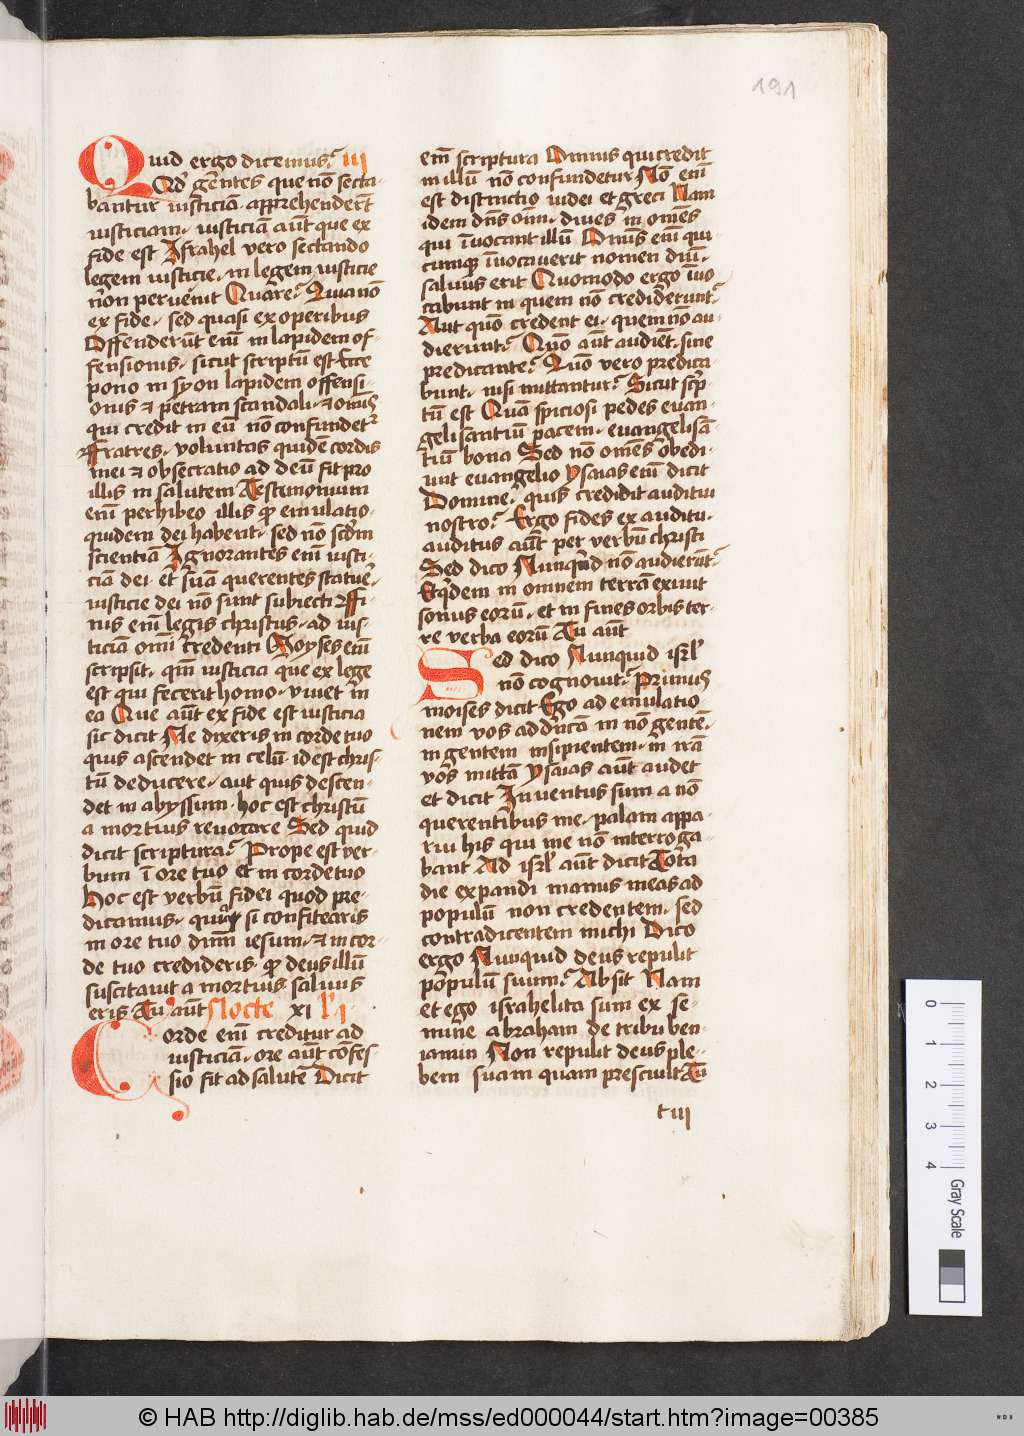 191
Quid ergo dicemus? iij
Qd̛ gentes que nō secta-
bantur iusticiam apprehenderūt
iusticiam. iusticiā aūt que ex
fide est Israhel vero sectando
legem iusticie. in legem iusticie
non peruenit Quare? Quia nō
ex fide. sed quasi ex operibus
Offenderūt eni̅ in lapidem of-
fensionis. sicut scriptū est Ecce
pono in syon lapidem offensi-
onis ⁊ petram scandali. ⁊ omīs
qui credit in eū nō confundet᷑
Fratres. voluntas quidē cordis
mei ⁊ obsecratio ad deū fit pro
illis in salutem Testimonium
eni̅ perhibeo illis ꝙ emulatio-
quidem dei habent. sed nō scd̅m
scientiā Ignorantes eni̅ iusti-
ciā dei et suā querentes statue̅.
iusticie dei nō sunt subiecti Fi-
nis eni̅ legis christus. ad ius-
ticiā omni credenti Moyses eni̅
scripsit. qm̅ iusticia que ex lege
est qui fecerit homo. viuet in
ea Que aūt ex fide est iusticia
sic dicit Ne dixeris in corde tuo
quis ascendet in celū. id est chris-
tū deducere. aut quis descen-
det in abyssum. hoc est christū
a mortuis reuocare Sed quid
dicit scriptura? Prope est ver-
bum ī ore tuo et in corde tuo
hoc est verbū fidei quod pre-
dicamus. quia si confitearis
in ore tuo dnm̅ iesum. ⁊ in cor-
de tuo credideris. ꝙ deus illū
suscitauit a mortuis saluus
eris Tu aūt Nocte xi li
Corde eni̅ creditur ad
iusticiā. ore aūt cōfes-
sio fit ad salutē Dicit
eni̅ scriptura Omnis qui credit
in illū nō confundetur Nō eni̅
est distinctio iudei et greci Nam
idem dns̅ om̅. diues in omēs
qui īuocant illū Omīs eni̅ qui-
cumqꝫ īuocauerit nomen dn̅i.
saluus erit Quomodo ergo īuo
cabunt in quem nō crediderunt?
Aut quō credent ei. quem nō au-
dierunt? Quō aūt audiēt. sine
predicante? Quō vero predica-
bunt. nisi mittantur? Sicut scrip̅-
tū est Quā speciosi pedes euan-
gelisantiū pacem. euangelisā-
tiū bona Sed nō omēs obedi-
unt euangelio ysaias eni̅ dicit
Domine. quis credidit auditui
nostro? Ergo fides ex auditu.
auditus aūt per verbū christi
Sed dico Nunquid nō audierūt?
Et qdem in omnem terrā exiuit
sonus eorū. et in fines orbis ter-
re verba eorū Tu aūt
Sed dico Nunquid isrl̅
nō cognouit? Primus
moises dicit Ego ad emulatio
nem vos adducā in nō gentē.
in gentem insipientem. in irā
vos mittā ysaias aūt audet
et dicit Inuentus sum a nō
querentibus me. palam appa-
rui his qui me nō interroga
bant Ad isrl̅ aūt dicit Tota
die expandi manus meas ad
populū non credentem. sed
contradicentem michi Dico
ergo Nunquid deus repulit
populū suum? Absit Nam
et ego israhelita sum ex se-
mine abraham de tribu ben-
iamin Non repulit deus ple-
bem suam quam presciuit Tu
t iii
0 1 2 3 4 Gray Scale
© HAB http://diglib.hab.de/mss/ed000044/start.htm?image=00385